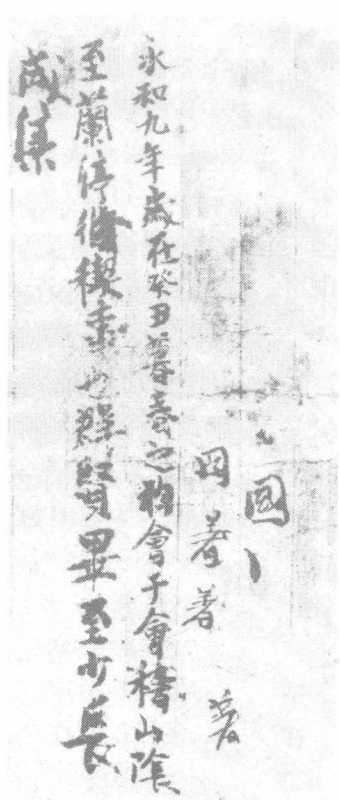 國
國著著
永和九年歲在癸丑暮春之初會于會稽山陰
至蘭渟脩稧事也羣賢畢至少長
咸集